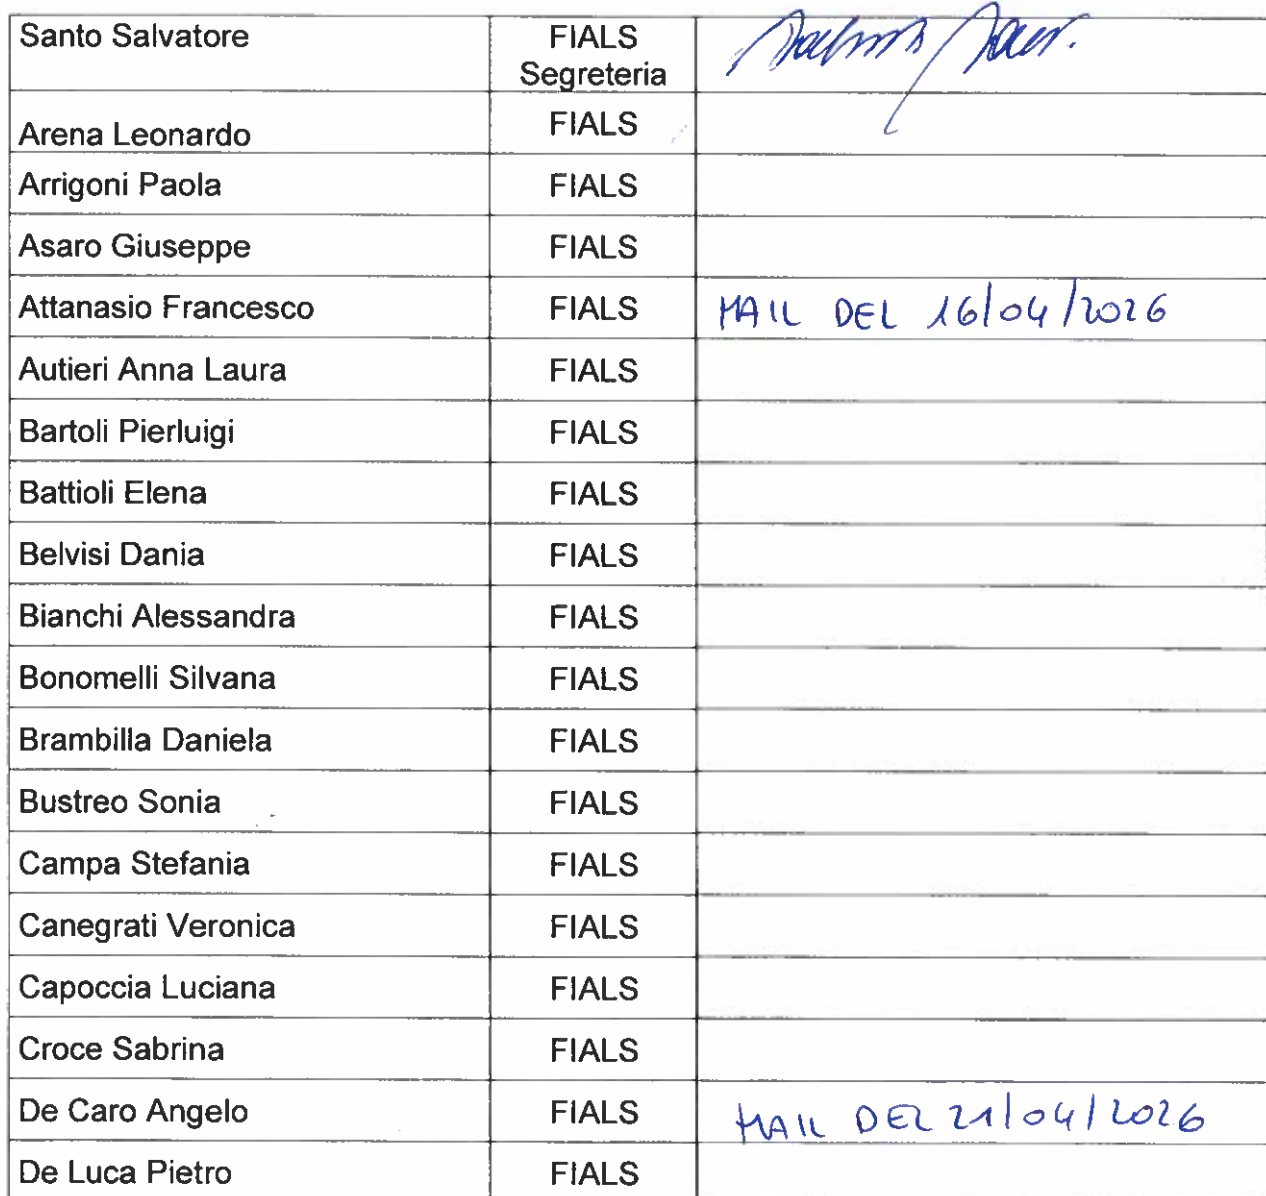 Santo Salvatore FIALS
Segreteria
Arena Leonardo FIALS
Arrigoni Paola FIALS
Asaro Giuseppe FIALS
Attanasio Francesco FIALS MAIL DEL 16/04/2026
Autieri Anna Laura FIALS
Bartoli Pierluigi FIALS
Battioli Elena FIALS
Belvisi Dania FIALS
Bianchi Alessandra FIALS
Bonomelli Silvana FIALS
Brambilla Daniela FIALS
Bustreo Sonia FIALS
Campa Stefania FIALS
Canegrati Veronica FIALS
Capoccia Luciana FIALS
Croce Sabrina FIALS
De Caro Angelo FIALS MAIL DEL 21/04/2026
De Luca Pietro FIALS